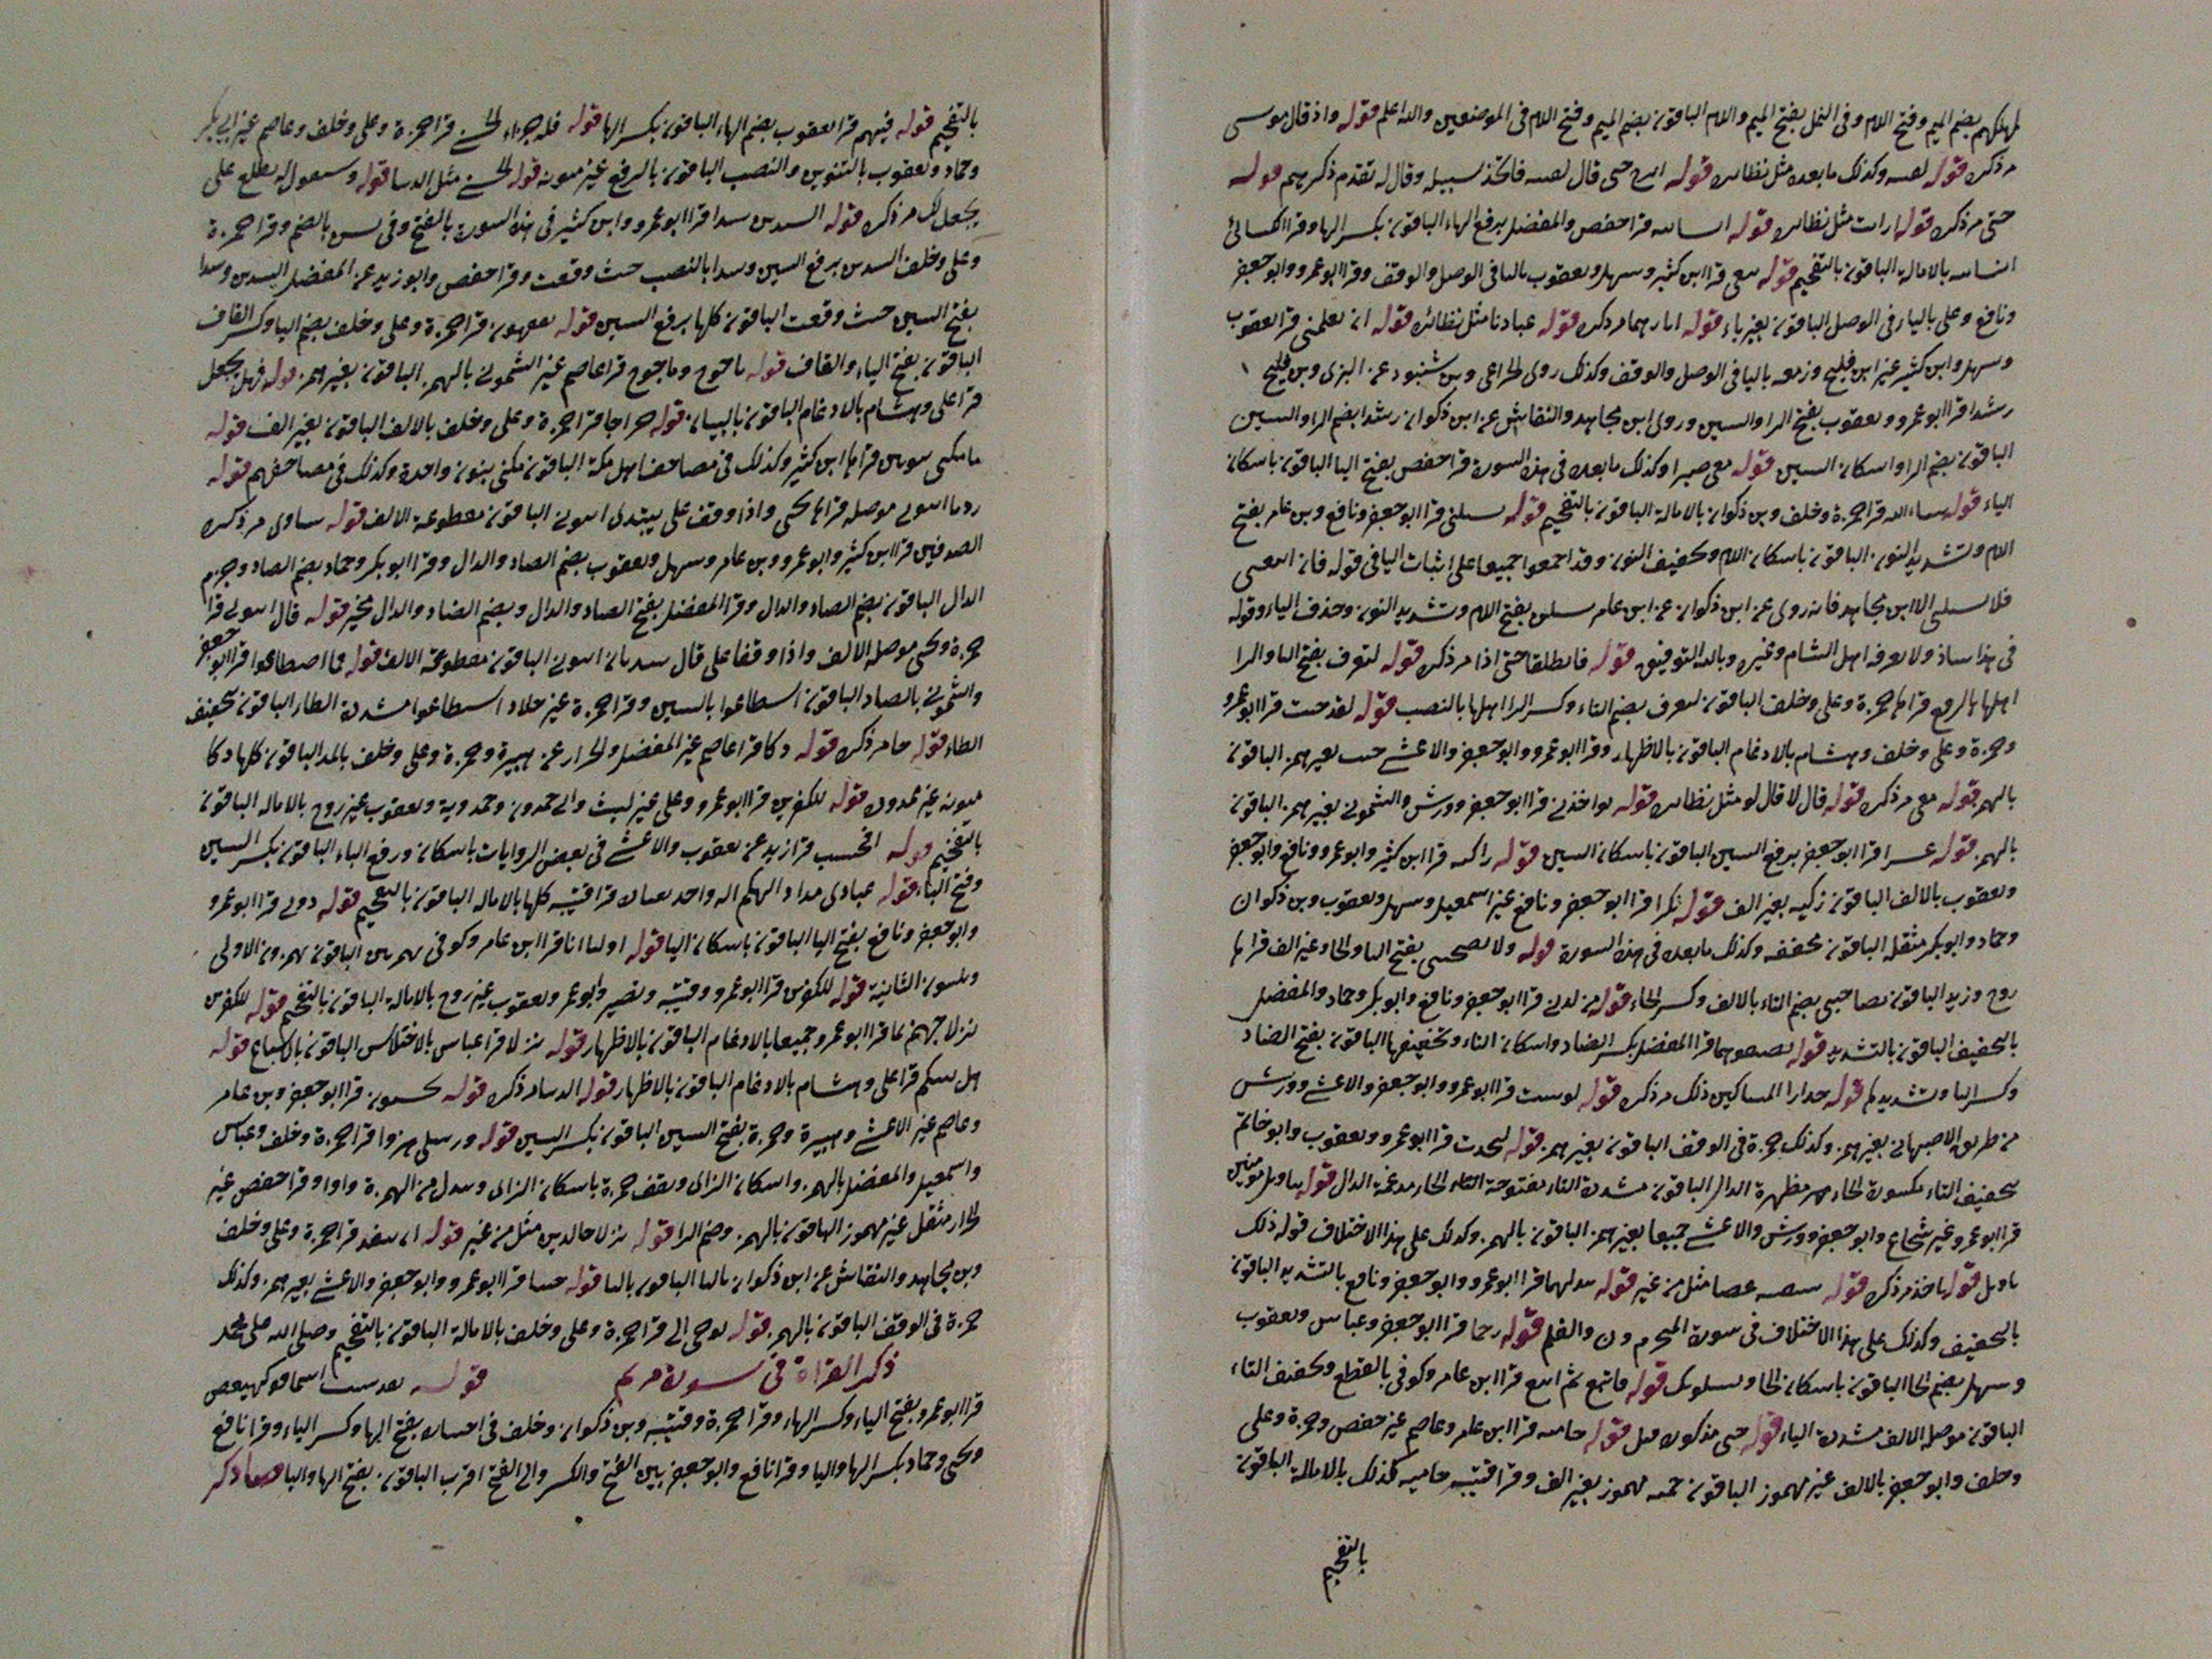 لمهلكهم بضم الميم وفتح اللام وفى النمل بفتح الميم واللام الباقون بضم الميم وفتح اللام فى الموضعين والله اعلم قوله واذ قال موسى
مر ذكره قوله لفتيه وكذلك ما بعده مثل نظائره قوله حتى قال لفتيه فاتخذ سبيله وقال له تقدم ذكرهم قوله
حتى مر ذكره قوله ارايت مثل نظائره قوله انسانيه قرا حفص والمفضل برفع الهاء الباقون بكسر الها وقرا الكسائى
انسانيه بالامالة الباقون بالتفخيم قوله نبغى قرا ابن كثير وسهل ويعقوب بالياء فى الوصل والوقف وقرا ابو عمرو وابو جعفر
ونافع وعلى بالياء فى الوصل الباقون بغير ياء قوله اثارهما مر ذكره قوله عبادنا مثل نظائره قوله ان تعلمنى قرا يعقوب
وسهل وابن كثير غير ابن فليح وزمعه باليا فى الوصل والوقف وكذلك روى الخزاعى وبن شنبوذ عن البزى وبن فليح
رشدا قرا ابو عمرو ويعقوب بفتح الرا والسين وروى ابن مجاهد والنقاش عن ابن ذكوان رشدا بضم الرا والسين
الباقون بضم الرا واسكان السين قوله معى صبرا وكذلك ما بعده فى هذه السورة قرا حفص بفتح اليا الباقون باسكان
الياء قوله شاء الله قرا حمزة وخلف وبن ذكوان بالامالة الباقون بالتفخيم قوله تسلنى قرا ابو جعفر ونافع وبن عامر بفتح
اللام وتشديد النون الباقون باسكان اللام وتخفيف النون وقد اجمعوا جميعا على اثبات اليا فى قوله فان اتبعتنى
فلا تسلنى الا ابن مجاهد فانه روى عن ابن ذكوان عن ابن عامر تسلن بفتح اللام وتشديد النون وحذف الياء وقوله
فى هذا شاذ ولا يعرفه اهل الشام وغيره وبالله التوفيق قوله فانطلقا حتى اذا مر ذكره قوله لتغرق بفتح اليا والرا
اهلها بالرفع قرا حمزة وعلى وخلف الباقون لتغرق بضم التاء وكسر الرا اهلها بالنصب قوله لقد جئت قرا ابو عمرو
وحمزة وعلى وخلف وهشام بالادغام الباقون بالاظهار وقرا ابو عمرو وابو جعفر والاعشى جيت بغير همز الباقون
بالهمز قوله معى مر ذكره قوله قال لا قال لو مثل نظائره قوله تواخذنى قرا ابو جعفر وورش والشمونى بغير همز الباقون
بالهمز قوله عسرا قرا ابو جعفر برفع السين الباقون باسكان السين قوله زاكية قرا ابن كثير وابو عمرو ونافع وابو جعفر
ويعقوب بالالف الباقون زكيه بغير الف قوله نكرا قرا ابو جعفر ونافع غير اسمعيل وسهل ويعقوب وبن ذكوان
وحماد وابو بكر مثقله الباقون مخففه وكذلك ما بعده فى هذه السورة قوله ولا تصحبنى بفتح التا والحا وغير الف قرا
روح وزيد الباقون تصاحبنى بضم التاء بالالف وكسر الحاء قوله من لدنى قرا ابو جعفر ونافع وابو بكر وحماد والمفضل
بالتخفيف الباقون بالتشديد قوله يضيفوهما قرا المفضل بكسر الضاد واسكان الياء وتخفيفها الباقون بفتح الضاد
وكسر اليا وتشديدها قوله جدارا المساكين ذلك مر ذكره قوله لو شيت قرا ابو عمرو وابو جعفر والاعشى وورش
من طريق الاصبهانى بغير همز وكذلك حمزة فى الوقف الباقون بغير همز قوله لتخذت قرا ابو عمرو ويعقوب وابو خاتم
بتخفيف التاء مكسورة الخاء مظهرة الدال الباقون مشددة التاء مفتوحة الخاء مدغمة الدال قوله بتاويل مومنين
قرا ابو عمرو غير شجاع وابو جعفر وورش والاعشى جميعا بغير همز الباقون بالهمز وكذلك على هذا الاختلاف قوله ذلك
تاويل قوله ياخذ مر ذكره قوله سفينه غصبا مثل من غير قوله يبدلهما قرا ابو عمرو وابو جعفر ونافع بالتشديد الباقون
بالتخفيف وكذلك على هذا الاختلاف فى سورة التحريم ون والقلم قوله رحما قرا ابو جعفر وعباس ويعقوب
وسهل بضم الحا الباقون باسكان الحا ويسلونك قوله فاتبع ثم اتبع قرا ابن عامر وكوفى بالقطع وتخفيف التاء
الباقون موصل الالف مشددة التاء قوله حتى مذكور قبل قوله حاميه قرا ابن عامر وعاصم غير حفص وحمزة وعلى
وخلف وابو جعفر بالالف غير مهموز الباقون حمئه مهموز بغير الف وقرا قتيبه حاميه كذلك بالامالة الباقون
بالتفخيم
بالتفخيم قوله فيهم قرا يعقوب بضم الهاء الباقون بكسر الها قوله فله جزاء الحسنى قرا حمزة وعلى وخلف وعاصم غير ابى بكر
وحماد ويعقوب بالتنوين والنصب الباقون بالرفع غير منونه قوله الحسنى مثل الدنيا قوله وسنقول له تطلع على
نجعل لك مر ذكره قوله السدين سدا قرا ابو عمرو وابن كثير فى هذه السورة بالفتح وفى يس بالضم وقرا حمزة
وعلى وخلف السدين برفع السين وسدا بالنصب حيث وقعت وقرا حفص وابو زيد عن المفضل السدين وسدا
بفتح السين حيث وقعت الباقون كلها برفع السين قوله يفقهون قرا حمزة وعلى وخلف بضم اليا وكسر القاف
الباقون بفتح الياء والقاف قوله ياجوج وماجوج قرا عاصم غير الشمونى بالهمز الباقون بغير همز قوله فهل نجعل
قرا على وهشام بالادغام الباقون بالبيان قوله خراجا قرا حمزة وعلى وخلف بالالف الباقون بغير الف قوله
ما مكنى بنونين قراها ابن كثير وكذلك فى مصاحف اهل مكة الباقون مكنى بنون واحدة وكذلك فى مصاحفهم قوله
ردما اتونى موصله قراها يحيى واذا وقف على يبتدى اتونى الباقون مقطوعة الالف قوله ساوى مر ذكره
الصدفين قرا ابن كثير وابو عمرو وبن عامر وسهل ويعقوب بضم الصاد والدال وقرا ابو بكر وحماد بضم الصاد وجزم
الدال الباقون بضم الصاد والدال وقرا المفضل بفتح الصاد والدال وبضم الضاد والدال مخير قوله قال اتونى قرا
حمزة ويحيى موصله الالف واذا وقفا على قال يبتديان اتونى الباقون مقطوعة الالف قوله فما اصطاعوا قرا ابو جعفر
والشمونى بالصاد الباقون اسطاعوا بالسين وقرا حمزة غير خلاد اسطاعوا مشددة الطاء الباقون بتخفيف
الطاء قوله جا مر ذكره قوله دكا قرا عاصم غير المفضل والخزاز عن هبيرة وحمزة وعلى وخلف بالمد الباقون كلها دكا
منونه غير ممدودة قوله للكفرين قرا ابو عمرو وعلى غير ليث وابى حمدون وحمدويه ويعقوب غير روح بالاماله الباقون
بالتفخيم قوله افحسب قرا زيد عن يعقوب والاعشى فى بعض الروايات باسكان ورفع الباء الباقون بكسر السين
وفتح الباء قوله عبادى مدادا الهكم اله واحد قرا قتيبه كلها بالاماله الباقون بالتفخيم قوله دونى قرا ابو عمرو
وابو جعفر ونافع بفتح اليا الباقون باسكان اليا قوله اوليا انا قرا ابن عامر وكوفى بهمزتين الباقون بهمزون الاولى
ويلينون الثانية قوله للكفرين قرا ابو عمرو وقتيبه ونصير وابو عمر ويعقوب غير روح بالامالة الباقون بالتفخيم قوله للكفرين
نزلا جهنم بما قرا ابو عمرو جميعا بالادغام الباقون بالاظهار قوله نزلا قرا عباس بالاختلاس الباقون بالاشباع قوله
هل ننبئكم قرا على وهشام بالادغام الباقون بالاظهار قوله الدنيا مر ذكره قوله يحسبون قرا ابو جعفر وبن عامر
وعاصم غير الاعشى وهبيرة وحمزة بفتح السين الباقون بكسر السين قوله ورسلى هزوا قرا حمزة وخلف وعباس
واسمعيل والمفضل بالهمز واسكان الزاى ويقف حمزة باسكان الزاى ويبدل من الهمزة واوا وقرا حفص غير
الخزاز مثقل غير مهموز الباقون بالهمز وضم الزا قوله نزلا خالدين مثل من غير قوله ان ينفد قرا حمزة وعلى وخلف
وبن مجاهد والنقاش عن ابن ذكوان باليا الباقون بالتا قوله جينا قرا ابو عمرو وابو جعفر والاعشى بغير همز وكذلك
حمزة فى الوقف الباقون بالهمز قوله يوحى الى قرا حمزة وعلى وخلف بالامالة الباقون بالتفخيم وصلى الله على محمد
ذكر القراة فى سورة مريم قوله كهيعص
قرا ابو عمرو بفتح الياء وكسر الهاء وقرا حمزة وقتيبه وبن ذكوان وخلف فى اختياره بفتح الها وكسر الياء وقرا نافع
ويحيى وحماد بكسر الها واليا وقرا نافع وابو جعفر بين الفتح والكسر والى الفتح اقرب الباقون بفتح الها واليا